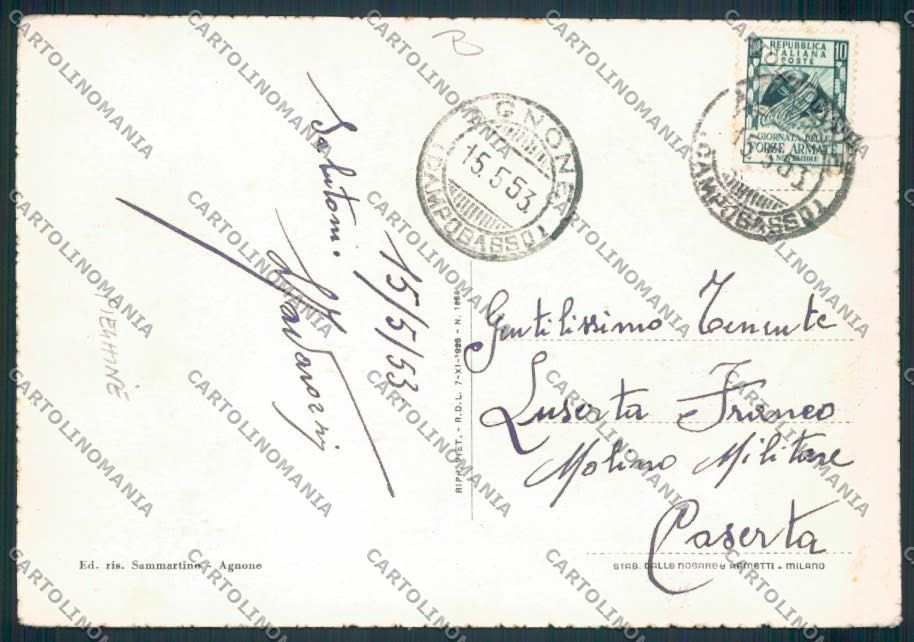 Salutoni.
15/5/53
PIEMME
AGNONE
15.5.53
(CAMPOBASSO)
REPUBBLICA
ITALIANA
POSTE
10
GIORNATA DELLE
FORZE ARMATE
4 NOVEMBRE
15.5.53
(CAMPOBASSO)
Gentilissimo Tenente
Luserta Franco
Molino Militare
Caserta
RIPR. VIET. - R.D.L. 7-XI-1925 - N.
Ed. ris. Sammartino - Agnone
STAB. DALLE NOGARE E ARMETTI - MILANO
CARTOLINOMANIA